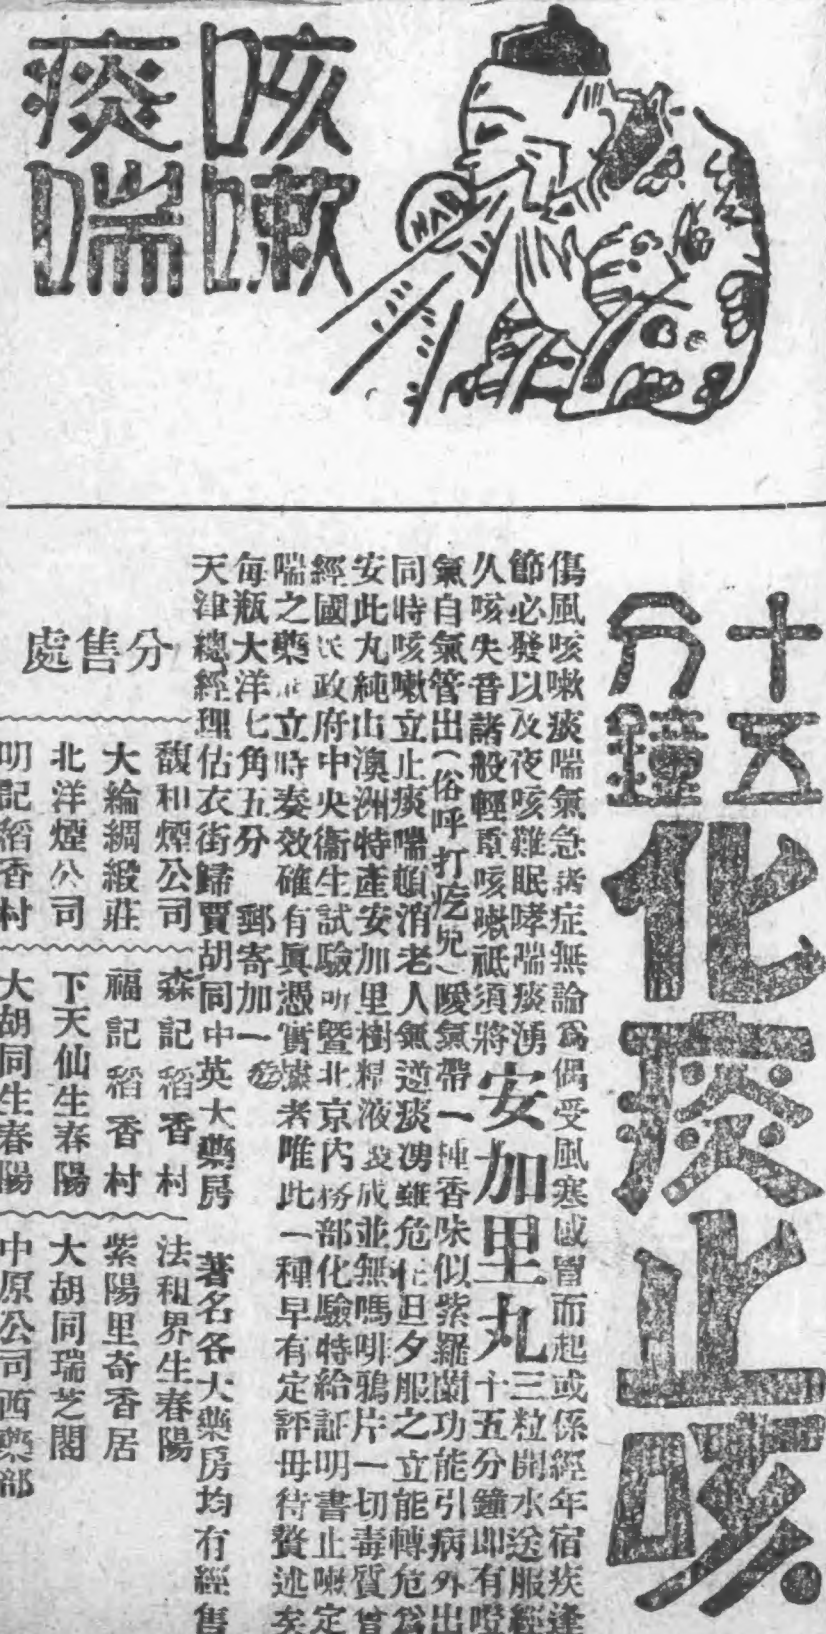 咳嗽
痰喘
HAR
十五
分鐘
化痰止咳
傷風咳嗽痰喘氣急諸症無論爲偶受風寒感冒而起或係經年宿疾逢
節必發以及夜咳難眠哮喘痰湧
久咳失音諸般輕重咳嗽祗須將安加里丸三粒開水送服經
十五分鐘即有噯
氣自氣管出(俗呼打疙兒)噯氣帶一種香味似紫羅蘭功能引病外出
同時咳嗽立止痰喘頓消老人氣逆痰湧雖危在旦夕服之立能轉危爲
安此丸純由澳洲特產安加里樹精液製成並無嗎啡鴉片一切毒質曾
經國民政府中央衞生試驗所暨北京內務部化驗特給証明書止嗽定
喘之藥立時奏效確有眞憑實據者唯此一種早有定評毋待贅述矣
每瓶大洋七角五分 郵寄加一
天津總經理估衣街歸賈胡同中英大藥房 著名各大藥房均有經售
分售處
馥和煙公司
大綸綢緞莊
北洋煙公司
明記稻香村
森記稻香村
福記稻香村
下天仙生春陽
大胡同生春陽
法租界生春陽
紫陽里奇香居
大胡同瑞芝閣
中原公司西藥部